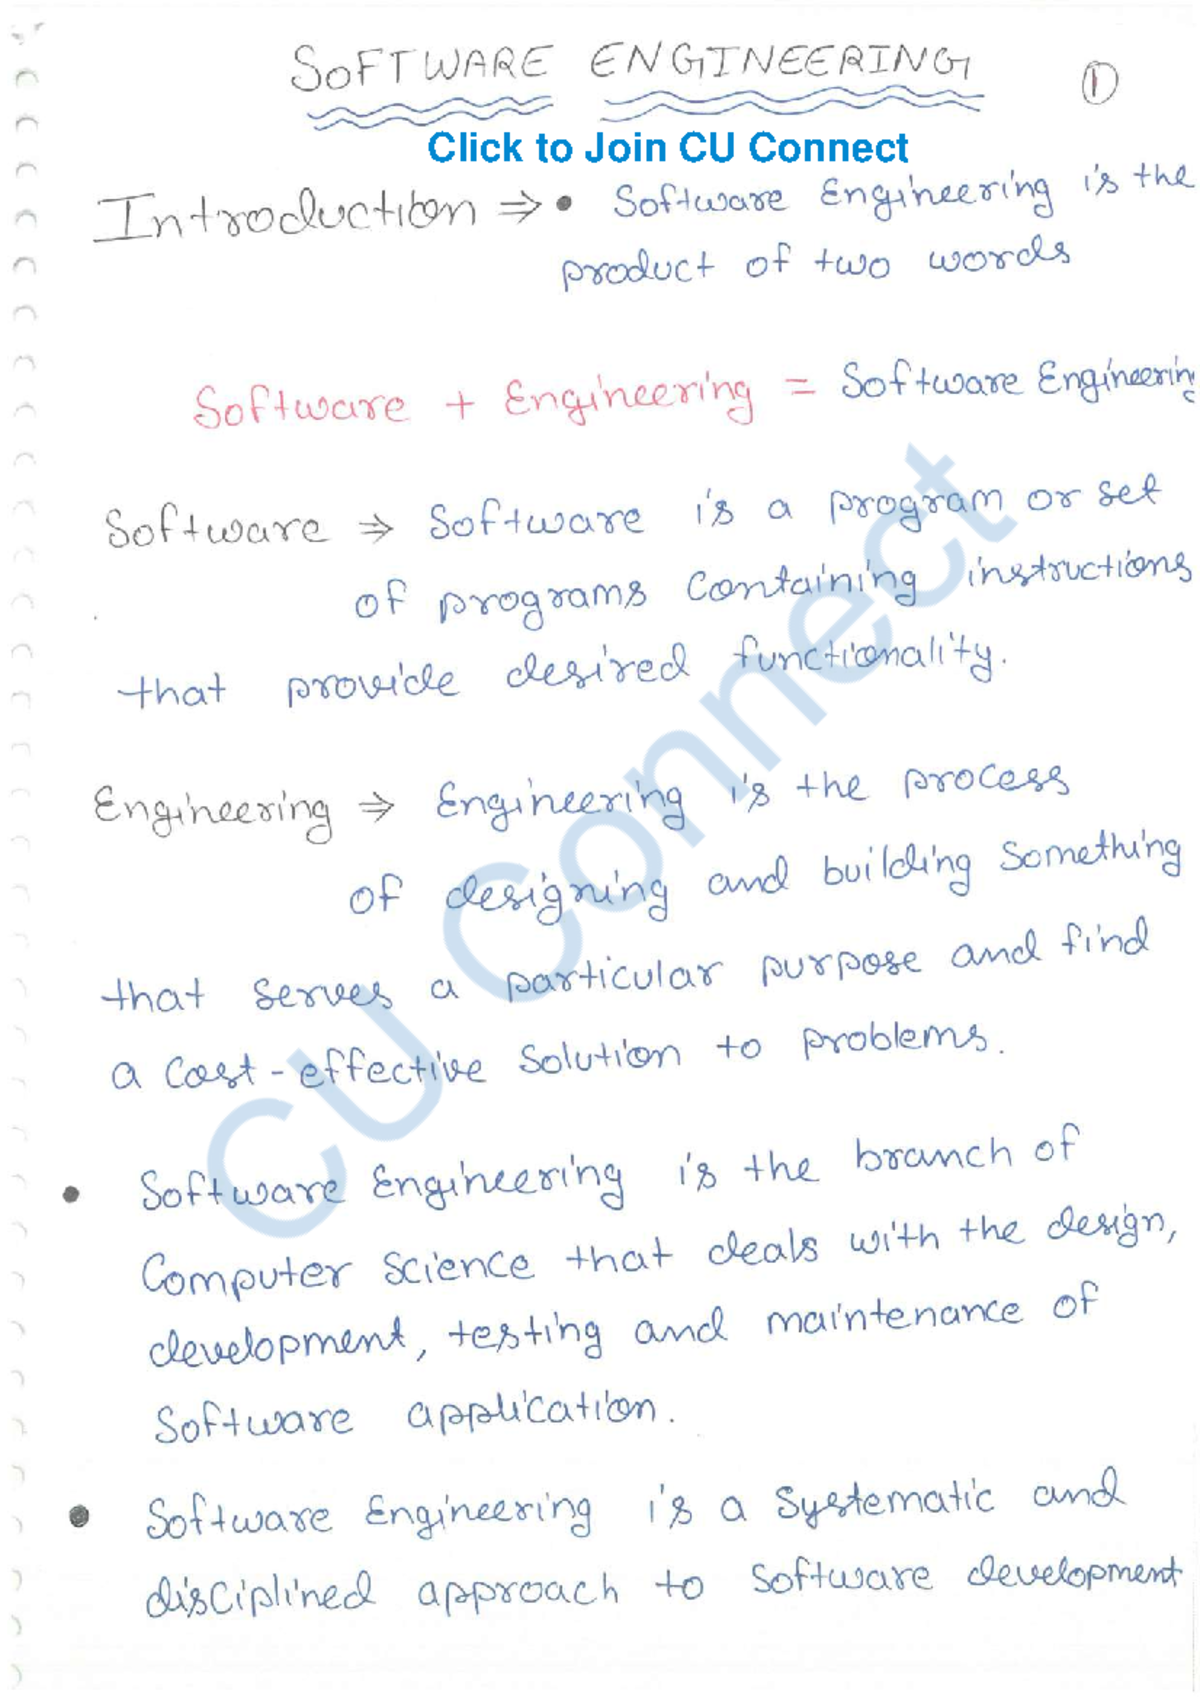 SOFTWARE ENGINEERING
1
Click to Join CU Connect
Introduction ⇒ • Software Engineering is the
product of two words
Software + Engineering = Software Engineering
Software ⇒ Software is a program or set
of programs containing instructions
that provide desired functionality.
Engineering ⇒ Engineering is the process
of designing and building something
that serves a particular purpose and find
a cost-effective solution to problems.
• Software Engineering is the branch of
Computer Science that deals with the design,
development, testing and maintenance of
Software application.
• Software Engineering is a Systematic and
disciplined approach to Software development
CU Connect